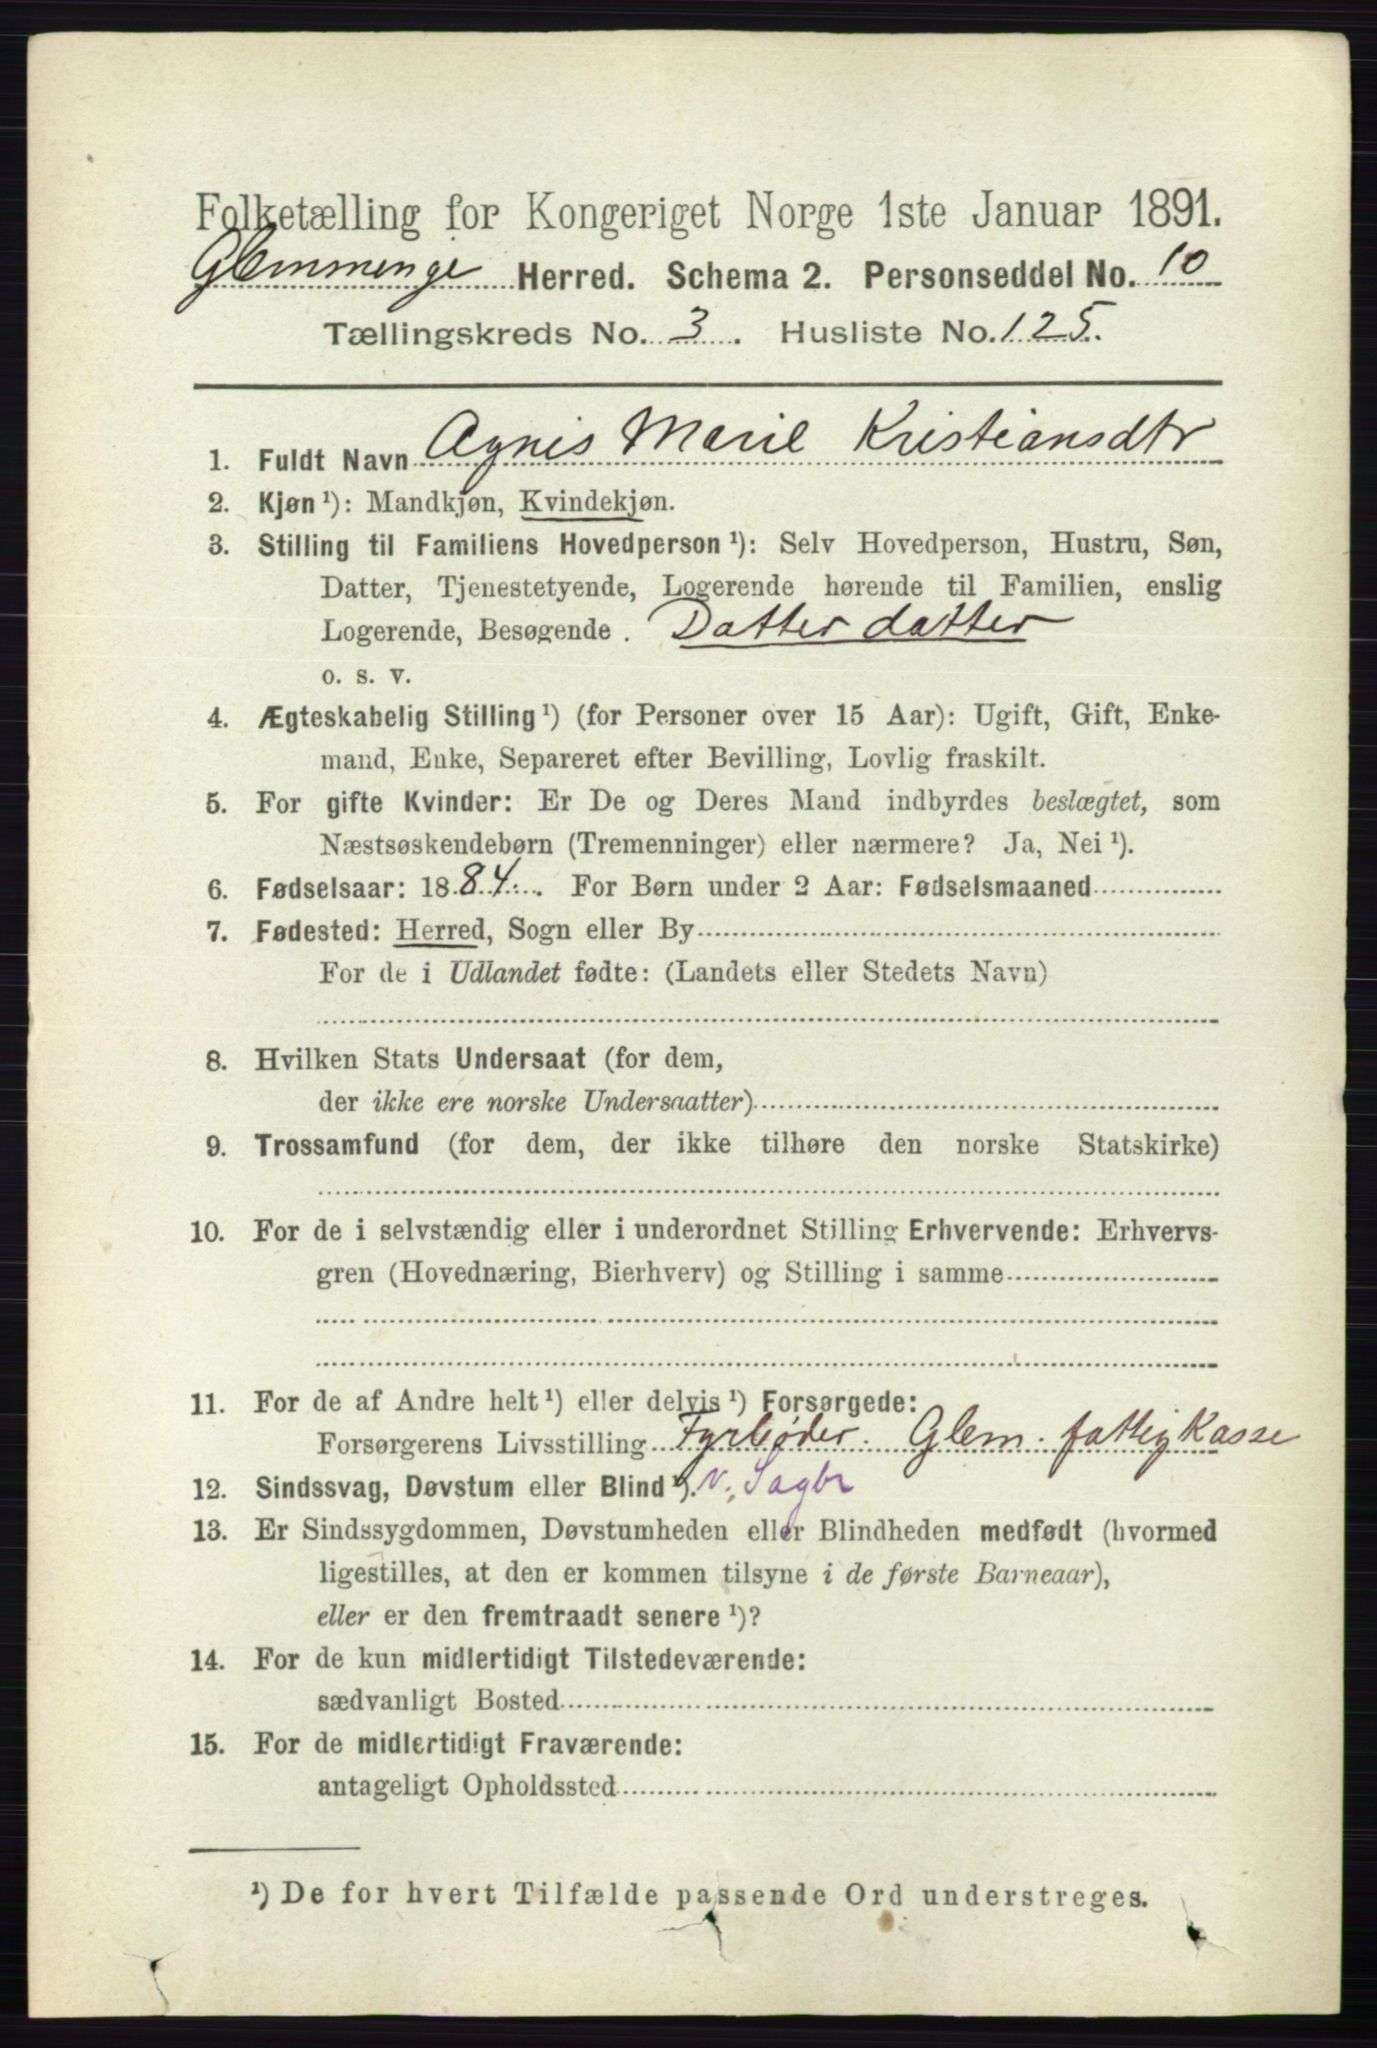 Folketælling for Kongeriget Norge 1ste Januar 1891.
Glemminge Herred. Schema 2. Personseddel No. 10
Tællingskreds No. 3. Husliste No. 125.
1. Fuldt Navn Agnis Marie Kristiansdtr
2. Kjøn ¹): Mandkjøn, Kvindekjøn.
3. Stilling til Familiens Hovedperson ¹): Selv Hovedperson, Hustru, Søn,
Datter, Tjenestetyende, Logerende hørende til Familien, enslig
Logerende, Besøgende . Datter datter
o. s. v.
4. Ægteskabelig Stilling ¹) (for Personer over 15 Aar): Ugift, Gift, Enke-
mand, Enke, Separeret efter Bevilling, Lovlig fraskilt.
5. For gifte Kvinder: Er De og Deres Mand indbyrdes beslægtet, som
Næstsøskendebørn (Tremenninger) eller nærmere? Ja, Nei ¹).
6. Fødselsaar: 1884. For Børn under 2 Aar: Fødselsmaaned
7. Fødested: Herred, Sogn eller By
For de i Udlandet fødte: (Landets eller Stedets Navn)
8. Hvilken Stats Undersaat (for dem,
der ikke ere norske Undersaatter)
9. Trossamfund (for dem, der ikke tilhøre den norske Statskirke)
10. For de i selvstændig eller i underordnet Stilling Erhvervende: Erhvervs-
gren (Hovednæring, Bierhverv) og Stilling i samme
11. For de af Andre helt ¹) eller delvis ¹) Forsørgede:
Forsørgerens Livsstilling Fyrbøder. Glem. fattig Kasse
12. Sindssvag, Døvstum eller Blind ¹). v. Sagbr
13. Er Sindssygdommen, Døvstumheden eller Blindheden medfødt (hvormed
ligestilles, at den er kommen tilsyne i de første Barneaar),
eller er den fremtraadt senere ¹)?
14. For de kun midlertidigt Tilstedeværende:
sædvanligt Bosted
15. For de midlertidigt Fraværende:
antageligt Opholdssted
¹) De for hvert Tilfælde passende Ord understreges.